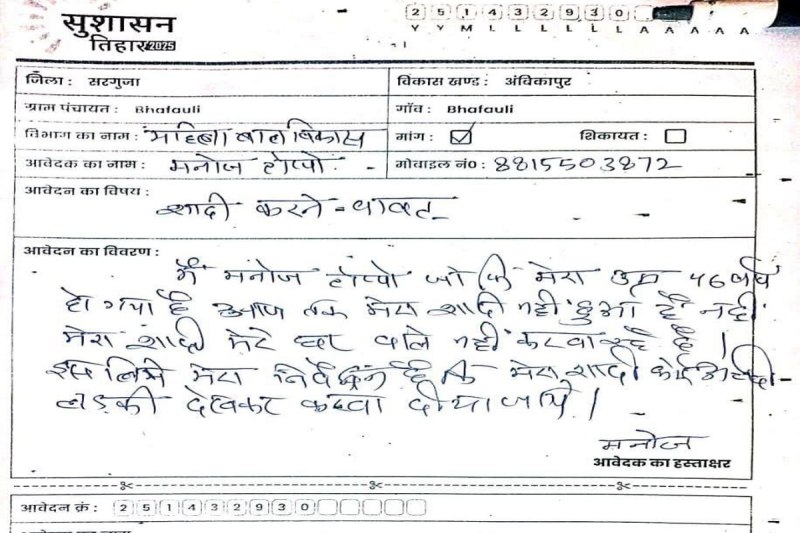 सुशासन
तिहार 2025
2 5 1 4 3 2 9 3 0
Y Y M L L L L L L A A A A A
जिला : सरगुजा
विकास खण्ड : अंबिकापुर
ग्राम पंचायत : Bhafauli
गाँव : Bhafauli
विभाग का नाम : महिला बाल विकास
मांग : ☑ शिकायत : ☐
आवेदक का नाम : मनोज टोप्पो
मोबाइल नं0 : 8815503872
आवेदन का विषय :
शादी करने - बाबत्
आवेदन का विवरण :
मैं मनोज टोप्पो जो कि मेरा उम्र 46 वर्ष
हो गया है आज तक मेरा शादी नहीं हुआ है नहीं
मेरा शादी मेरे घर वाले नहीं करवा रहे है |
इस लिये मेरा निवेदन है कि मेरा शादी कोई
लड़की देखकर करवा दीया जाये |
मनोज
आवेदक का हस्ताक्षर
आवेदन क्रं : 2 5 1 4 3 2 9 3 0